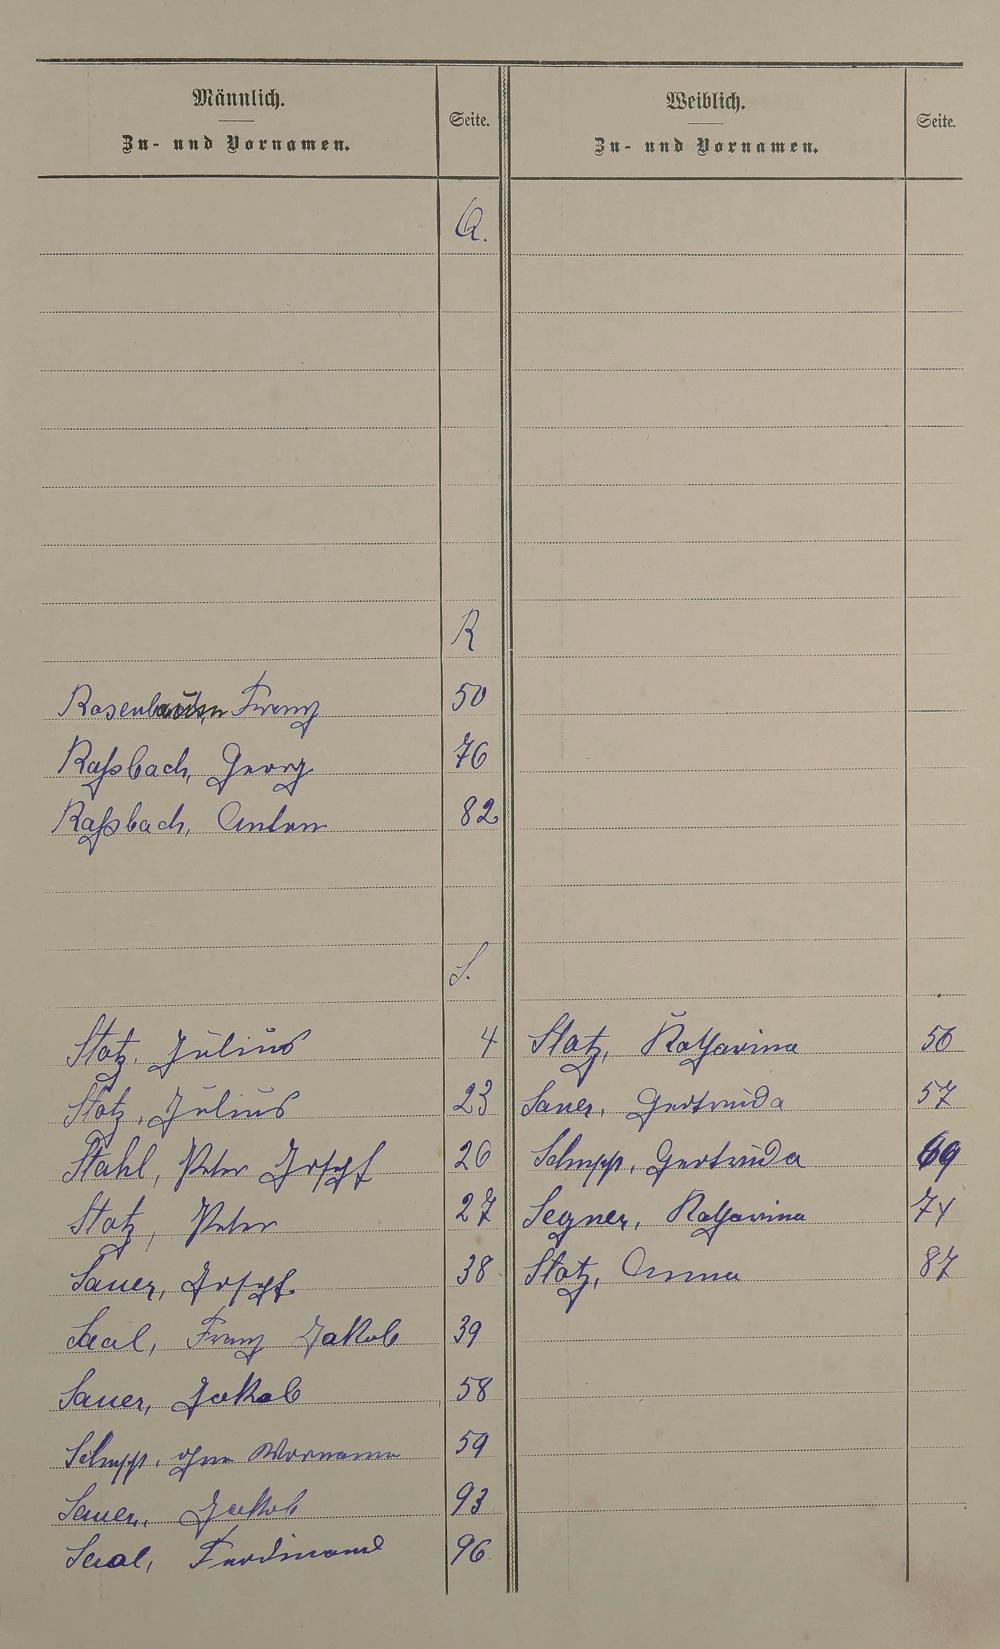 Männlich.
Zu- und Vornamen.
Seite.
Weiblich.
Zu- und Vornamen.
Seite.
Q.
R
Rosenbaum Franz 50
Raßbach, Georg 76
Raßbach, Anton 82
S.
Stotz, Julius 4 Stotz, Katharina 56
Stotz, Julius 23 Sauer, Gertruda 57
Stahl, Peter Joseph 26 Schupp, Gertruda 69
Stotz, Peter 27 Segner, Katharina 74
Sauer, Joseph 38 Stotz, Anna 87
Saal, Franz Jakob 39
Sauer, Jakob 58
Schupp, ohne Vorname 59
Sauer, Jakob 93
Saal, Ferdinand 96